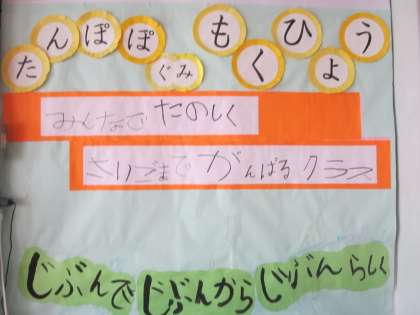 たんぽぽぐみ もくひょう
みんなで たのしく
さいごまで がんばる クラス
じぶんで じぶんから じぶんらしく